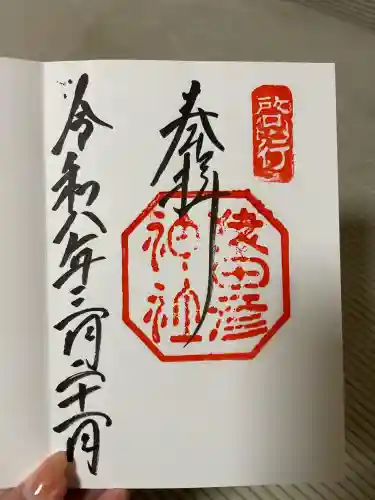 啓行
奉拝
猿田彦
神社
令和八年三月二十一日